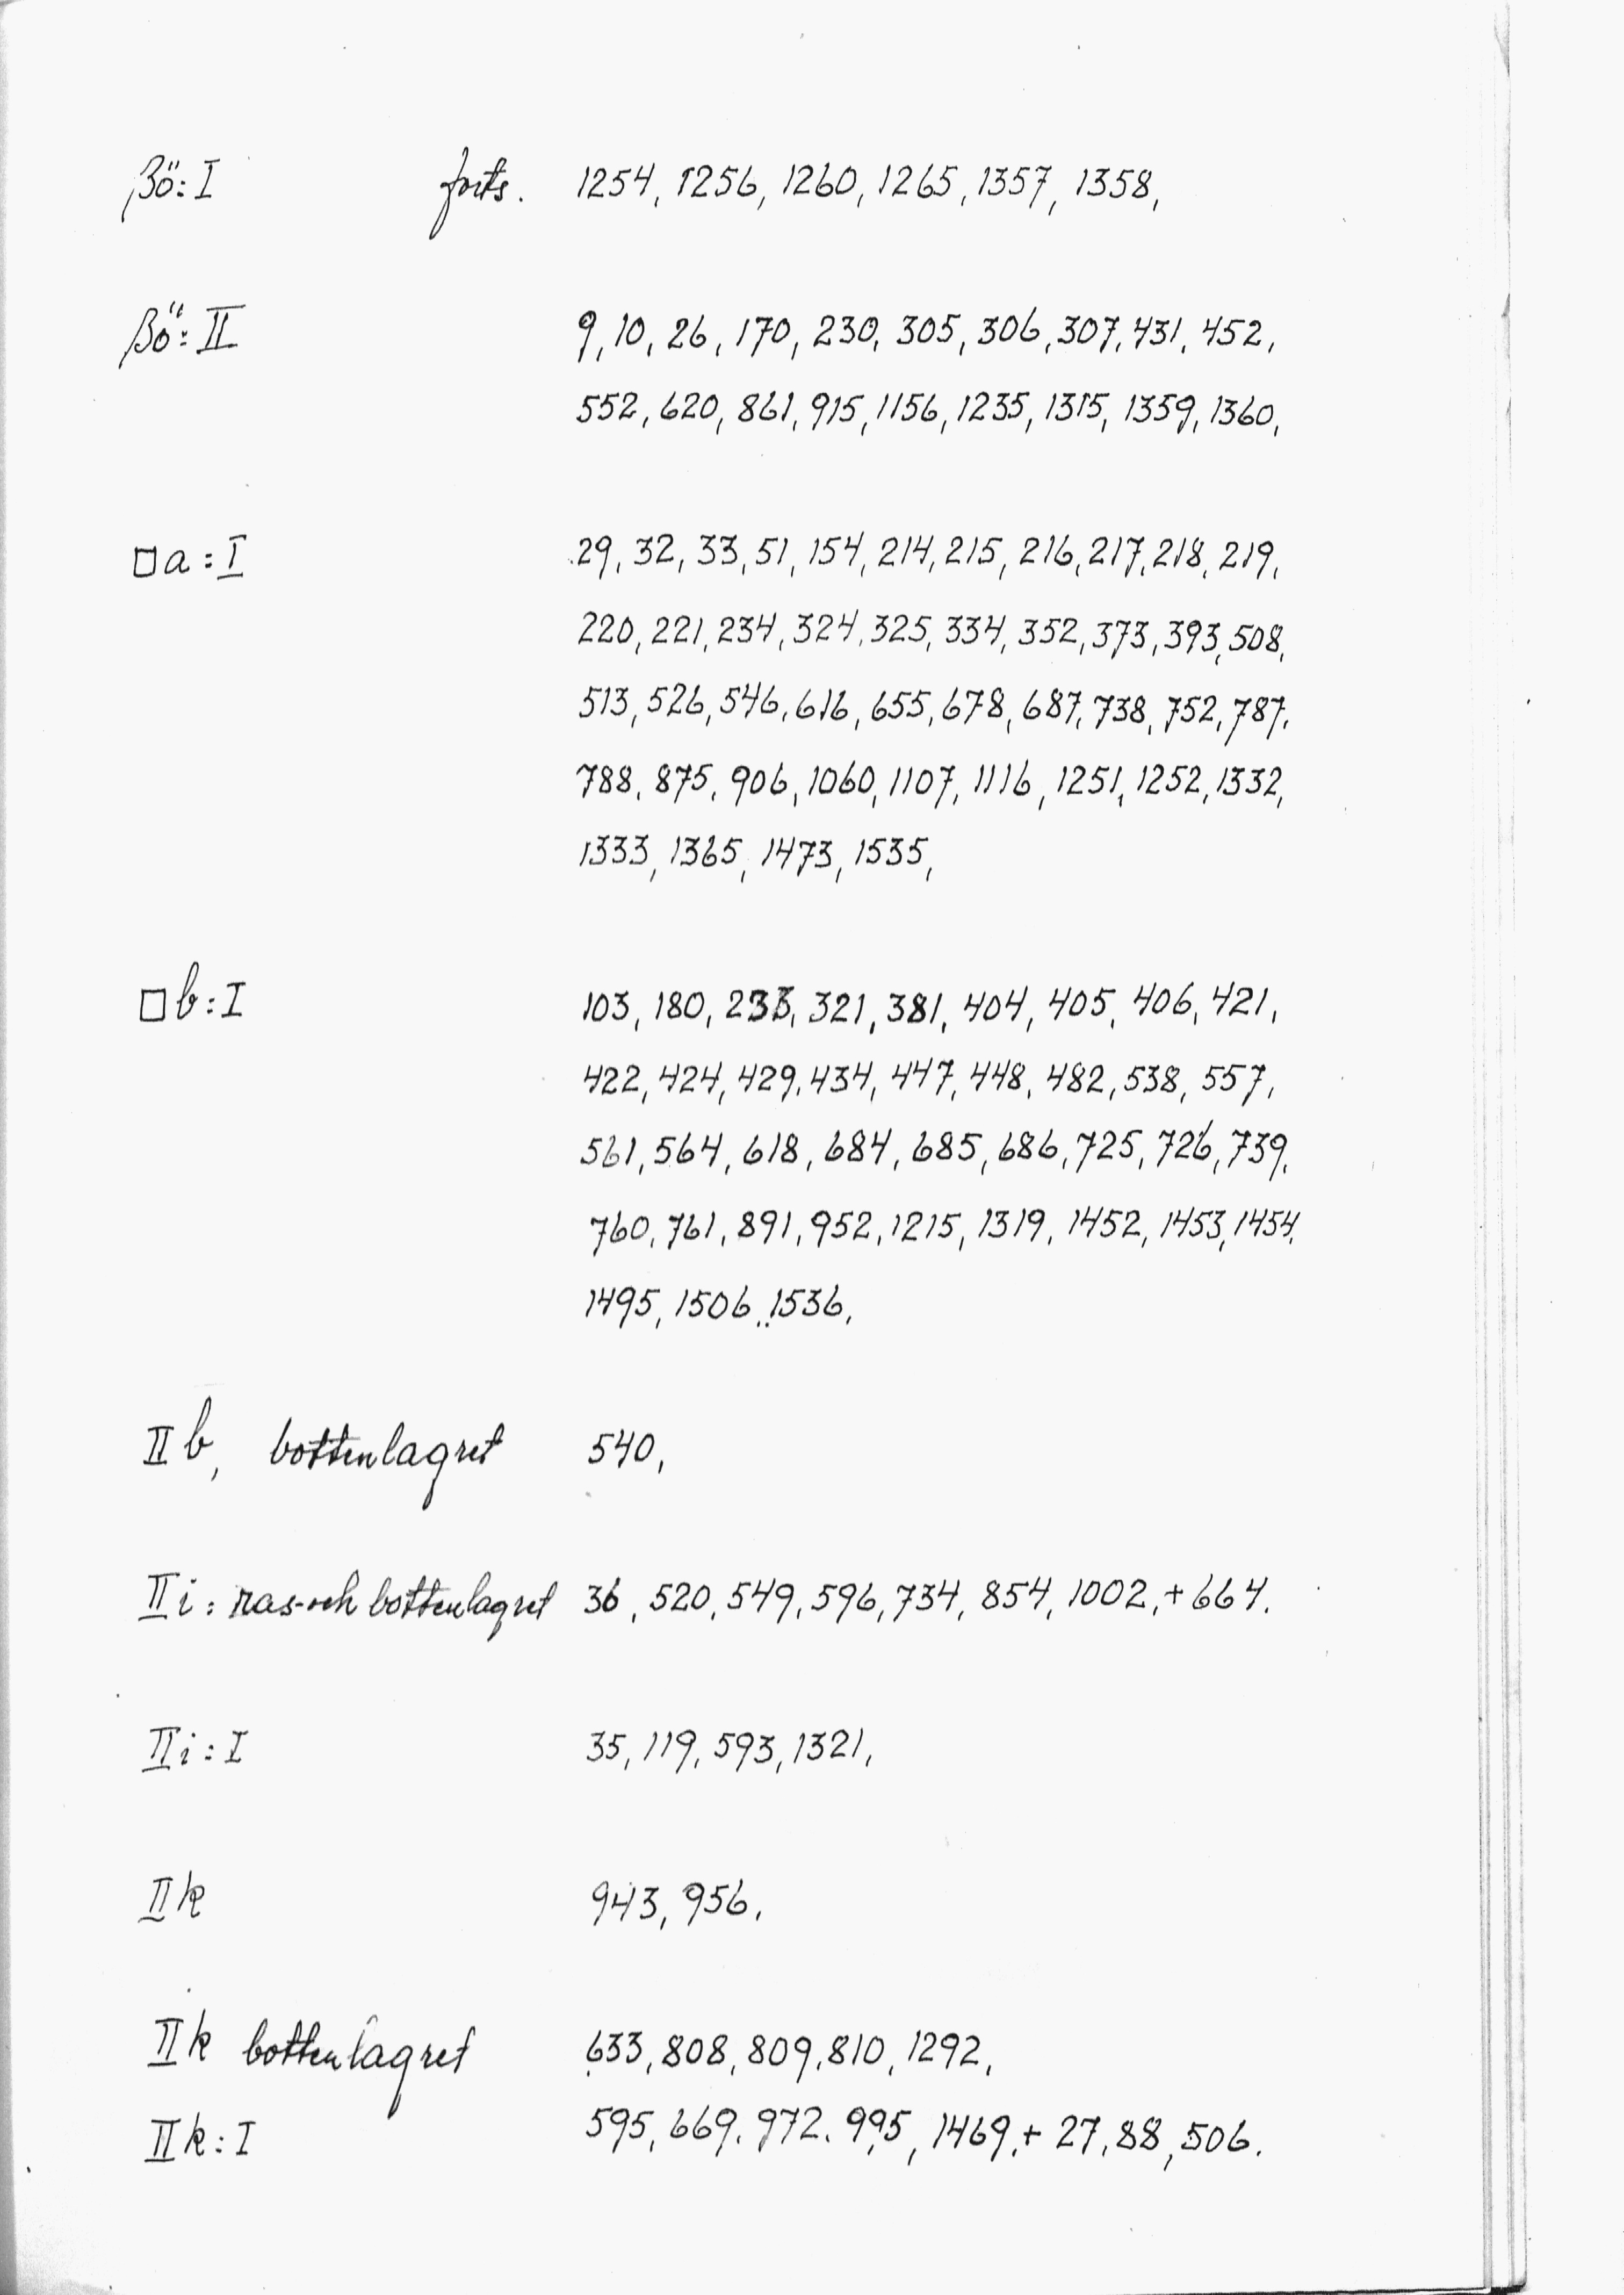 βö: I forts. 1254, 1256, 1260, 1265, 1357, 1358,
βö: II 9, 10, 26, 170, 230, 305, 306, 307, 431, 452,
552, 620, 861, 915, 1156, 1235, 1315, 1359, 1360,
□a: I 29, 32, 33, 51, 154, 214, 215, 216, 217, 218, 219,
220, 221, 234, 324, 325, 334, 352, 373, 393, 508,
513, 526, 546, 616, 655, 678, 687, 738, 752, 787,
788, 875, 906, 1060, 1107, 1116, 1251, 1252, 1332,
1333, 1365, 1473, 1535,
□b: I 103, 180, 233, 321, 381, 404, 405, 406, 421,
422, 424, 429, 434, 447, 448, 482, 538, 557,
561, 564, 618, 684, 685, 686, 725, 726, 739,
760, 761, 891, 952, 1215, 1319, 1452, 1453, 1454,
1495, 1506, 1536,
II b, bottenlagret 540,
II i: ras- och bottenlagret 36, 520, 549, 596, 734, 854, 1002, + 664.
II i: I 35, 119, 593, 1321,
II k 943, 956,
II k bottenlagret 633, 808, 809, 810, 1292,
II k: I 595, 669, 972, 995, 1469, + 27, 88, 506.